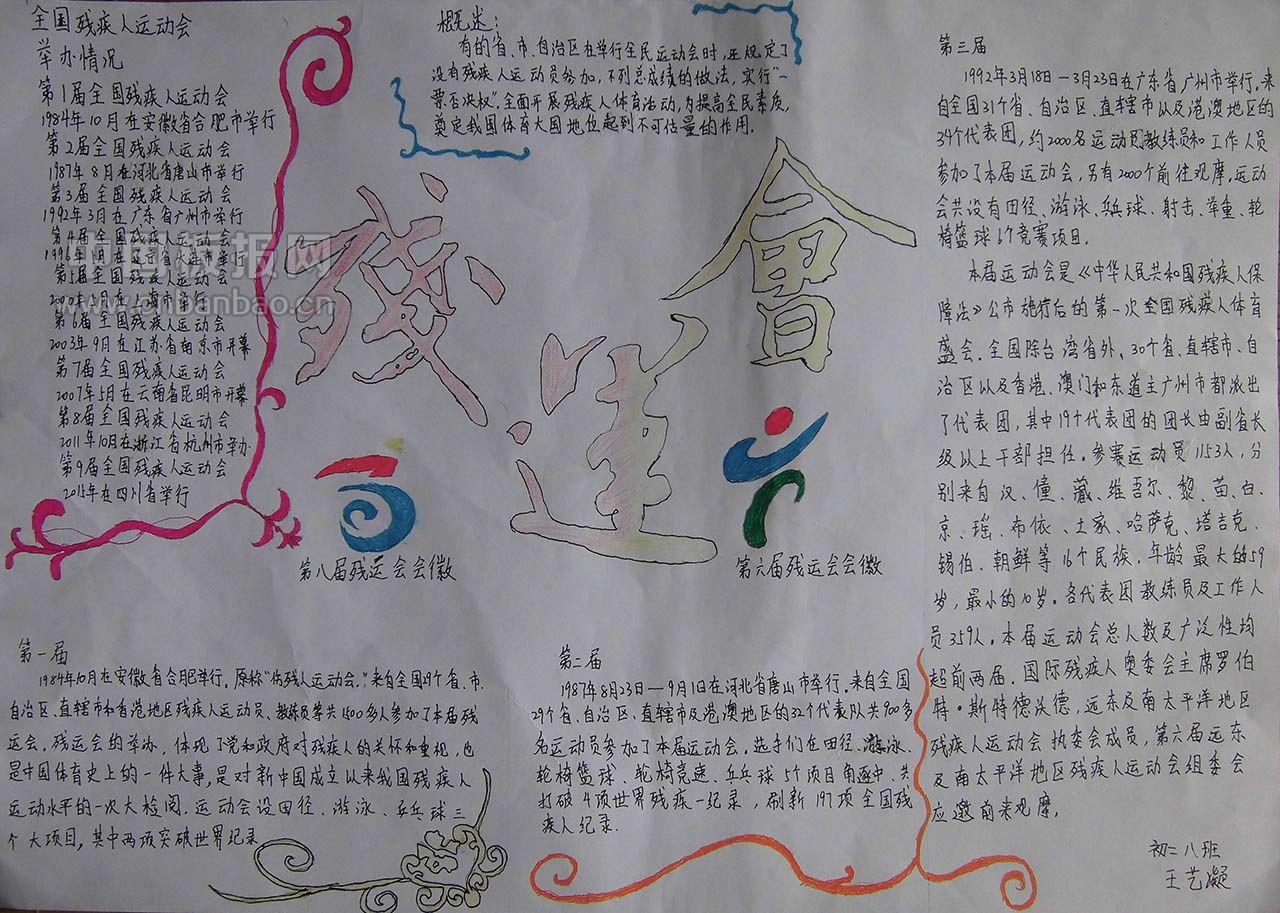 全国残疾人运动会
举办情况
第1届全国残疾人运动会
1984年10月在安徽省合肥市举行
第2届全国残疾人运动会
1987年8月在河北省唐山市举行
第3届全国残疾人运动会
1992年3月在广东省广州市举行
第4届全国残疾人运动会
第5届全国残疾人运动会
第6届全国残疾人运动会
2003年9月在江苏省南京市开幕
第7届全国残疾人运动会
2007年5月在云南省昆明市开幕
第8届全国残疾人运动会
2011年10月在浙江省杭州市举办
第9届全国残疾人运动会
2015年在四川省举行
中国板报网
cnbanbao.cn
概述：
有的省、市、自治区在举行全民运动会时，还规定了
没有残疾人运动员参加，不列总成绩的做法，实行“一
票否决权”。全面开展残疾人体育活动，为提高全民素质，
奠定我国体育大国地位起到不可估量的作用。
殘運會
第八届残运会会徽
第六届残运会会徽
第一届
1984年10月在安徽省合肥举行。原称“伤残人运动会。”来自全国29个省、市、
自治区、直辖市和香港地区残疾人运动员、教练员等共1500多人参加了本届残
运会。残运会的举办，体现了党和政府对残疾人的关怀和重视，也
是中国体育史上的一件大事，是对新中国成立以来我国残疾人
运动水平的一次大检阅。运动会设田径、游泳、乒乓球三
个大项目，其中两项突破世界纪录
第二届
1987年8月23日—9月1日在河北省唐山市举行。来自全国
29个省、自治区、直辖市及港澳地区的32个代表队共900多
名运动员参加了本届运动会。选手们在田径、游泳、
轮椅篮球、轮椅竞速、乒乓球5个项目角逐中，共
打破4项世界残疾一纪录，刷新197项全国残
疾人纪录.
第三届
1992年3月18日—3月23日在广东省广州市举行。来
自全国31个省、自治区、直辖市以及港澳地区的
34个代表团，约2000名运动员教练员和工作人员
参加了本届运动会，另有2000个前往观摩。运动
会共设有田径、游泳、乒乓球、射击、举重、轮
椅篮球6个竞赛项目。
本届运动会是《中华人民共和国残疾人保
障法》公布施行后的第一次全国残疾人体育
盛会。全国除台湾省外，30个省、直辖市、自
治区以及香港、澳门和东道主广州市都派出
了代表团，其中19个代表团的团长由副省长
级以上干部担任。参赛运动员1153人，分
别来自汉、僮、藏、维吾尔、黎、苗、白、
京、瑶、布依、土家、哈萨克、塔吉克、
锡伯、朝鲜等16个民族。年龄最大的59
岁，最小的10岁。各代表团教练员及工作人
员359人。本届运动会总人数及广泛性均
超前两届。国际残疾人奥委会主席罗伯
特·斯特德沃德，远东及南太平洋地区
残疾人运动会执委会成员，第六届远东
及南太平洋地区残疾人运动会组委会
应邀前来观摩。
初二八班
王艺凝